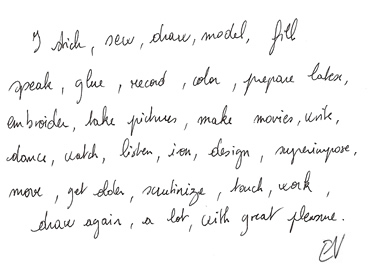 I stick, sew, draw, model, fill
speak, glue, record, color, prepare latex,
embroider, take pictures, make movies, write,
dance, watch, listen, iron, design, superimpose,
move, get older, scrutinize, touch, work,
draw again, a lot, with great pleasure.